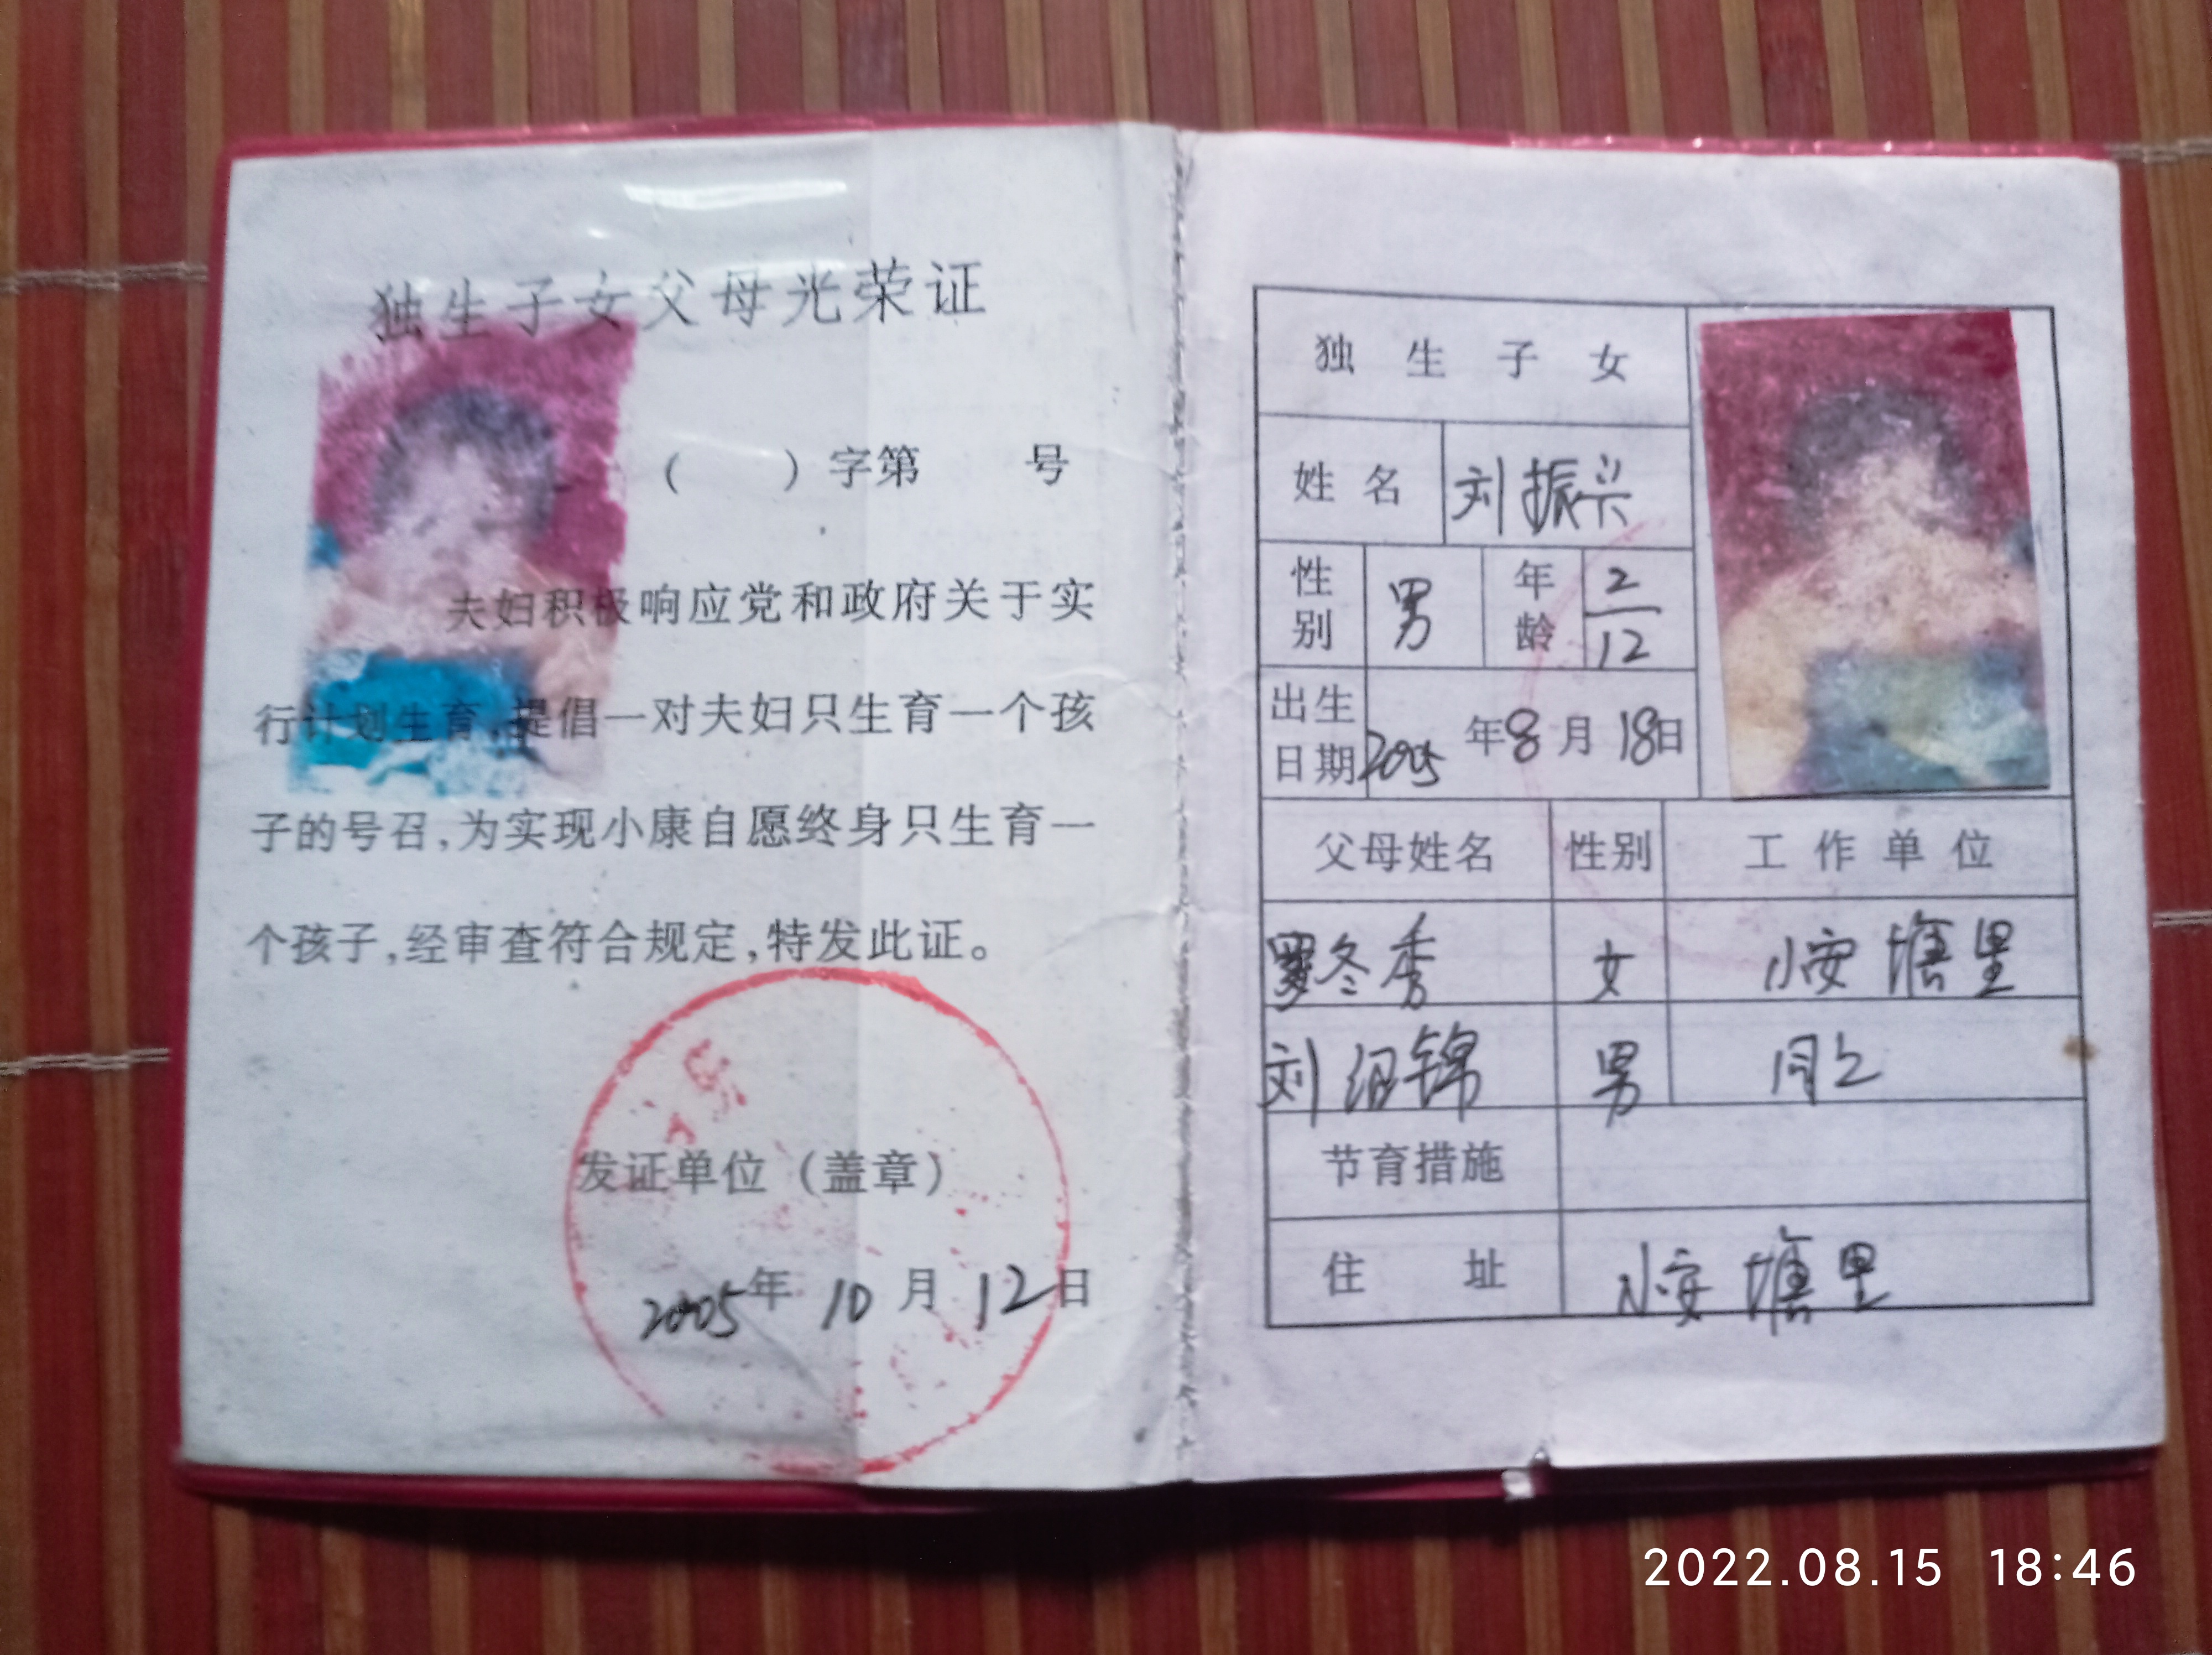 独生子女父母光荣证
(　　)字第　　号
夫妇积极响应党和政府关于实
行计划生育,提倡一对夫妇只生育一个孩
子的号召,为实现小康自愿终身只生育一
个孩子,经审查符合规定,特发此证。
发证单位(盖章)
2005年 10 月 12日
独生子女
姓名 刘振兴
性别 男 年龄 2/12
出生日期 2005年8月18日
父母姓名 性别 工作单位
罗冬秀 女 小安塘里
刘绍锦 男 同上
节育措施
住址 小安塘里
2022.08.15 18:46